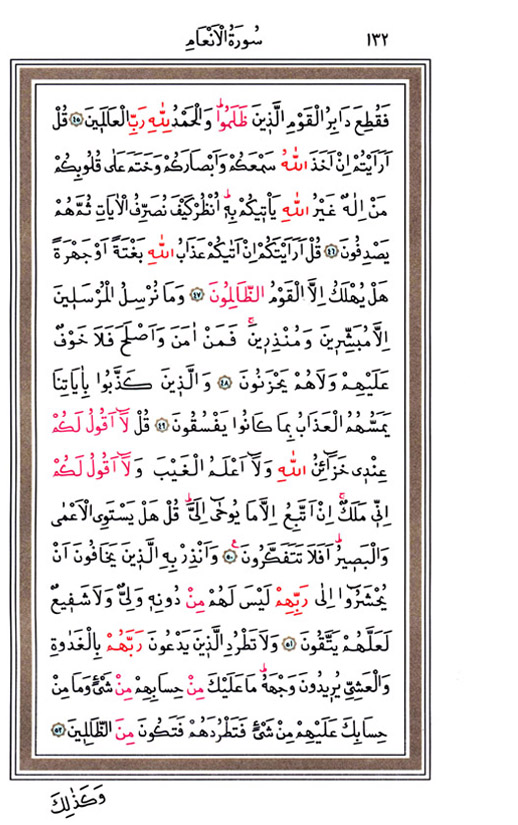 ١٣٢ سُورَةُ الْاَنْعَامِ
فَقُطِعَ دَابِرُ الْقَوْمِ الَّذٖينَ ظَلَمُواؕ وَالْحَمْدُ لِلّٰهِ رَبِّ الْعَالَمٖينَ ﴿٤٥﴾ قُلْ
اَرَاَيْتُمْ اِنْ اَخَذَ اللّٰهُ سَمْعَكُمْ وَاَبْصَارَكُمْ وَخَتَمَ عَلٰى قُلُوبِكُمْ
مَنْ اِلٰهٌ غَيْرُ اللّٰهِ يَاْتٖيكُمْ بِهٖؕ اُنْظُرْ كَيْفَ نُصَرِّفُ الْاٰيَاتِ ثُمَّ هُمْ
يَصْدِفُونَ ﴿٤٦﴾ قُلْ اَرَاَيْتَكُمْ اِنْ اَتٰيكُمْ عَذَابُ اللّٰهِ بَغْتَةً اَوْ جَهْرَةً
هَلْ يُهْلَكُ اِلَّا الْقَوْمُ الظَّالِمُونَ ﴿٤٧﴾ وَمَا نُرْسِلُ الْمُرْسَلٖينَ
اِلَّا مُبَشِّرٖينَ وَمُنْذِرٖينَۚ فَمَنْ اٰمَنَ وَاَصْلَحَ فَلَا خَوْفٌ
عَلَيْهِمْ وَلَا هُمْ يَحْزَنُونَ ﴿٤٨﴾ وَالَّذٖينَ كَذَّبُوا بِاٰيَاتِنَا
يَمَسُّهُمُ الْعَذَابُ بِمَا كَانُوا يَفْسُقُونَ ﴿٤٩﴾ قُلْ لَٓا اَقُولُ لَكُمْ
عِنْدٖى خَزَٓائِنُ اللّٰهِ وَلَٓا اَعْلَمُ الْغَيْبَ وَلَٓا اَقُولُ لَكُمْ
اِنّٖى مَلَكٌۚ اِنْ اَتَّبِعُ اِلَّا مَا يُوحٰٓى اِلَیَّؕ قُلْ هَلْ يَسْتَوِى الْاَعْمٰى
وَالْبَصٖيرُؕ اَفَلَا تَتَفَكَّرُونَࣖ ﴿٥٠﴾ وَاَنْذِرْ بِهِ الَّذٖينَ يَخَافُونَ اَنْ
يُحْشَرُٓوا اِلٰى رَبِّهِمْ لَيْسَ لَهُمْ مِنْ دُونِهٖ وَلِیٌّ وَلَا شَفٖيعٌ
لَعَلَّهُمْ يَتَّقُونَ ﴿٥١﴾ وَلَا تَطْرُدِ الَّذٖينَ يَدْعُونَ رَبَّهُمْ بِالْغَدٰوةِ
وَالْعَشِیِّ يُرٖيدُونَ وَجْهَهُؕ مَا عَلَيْكَ مِنْ حِسَابِهِمْ مِنْ شَیْءٍ وَمَا مِنْ
حِسَابِكَ عَلَيْهِمْ مِنْ شَیْءٍ فَتَطْرُدَهُمْ فَتَكُونَ مِنَ الظَّالِمٖينَ ﴿٥٢﴾
وَكَذٰلِكَ